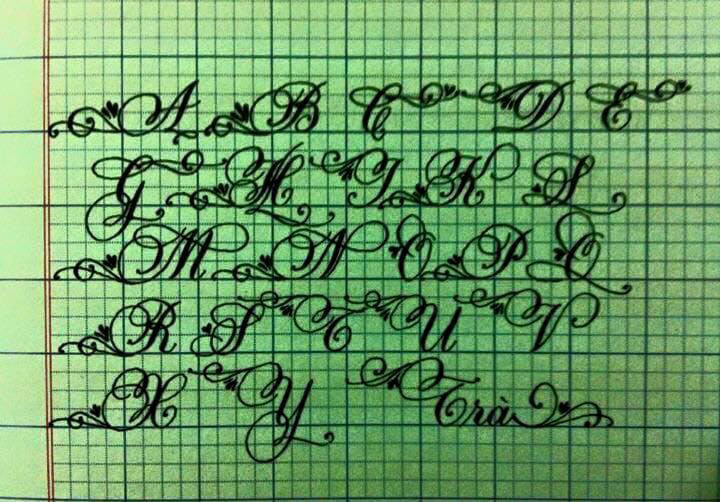 A B C D E
G H I K L
M N O P Q
R S T U V
X Y Trà